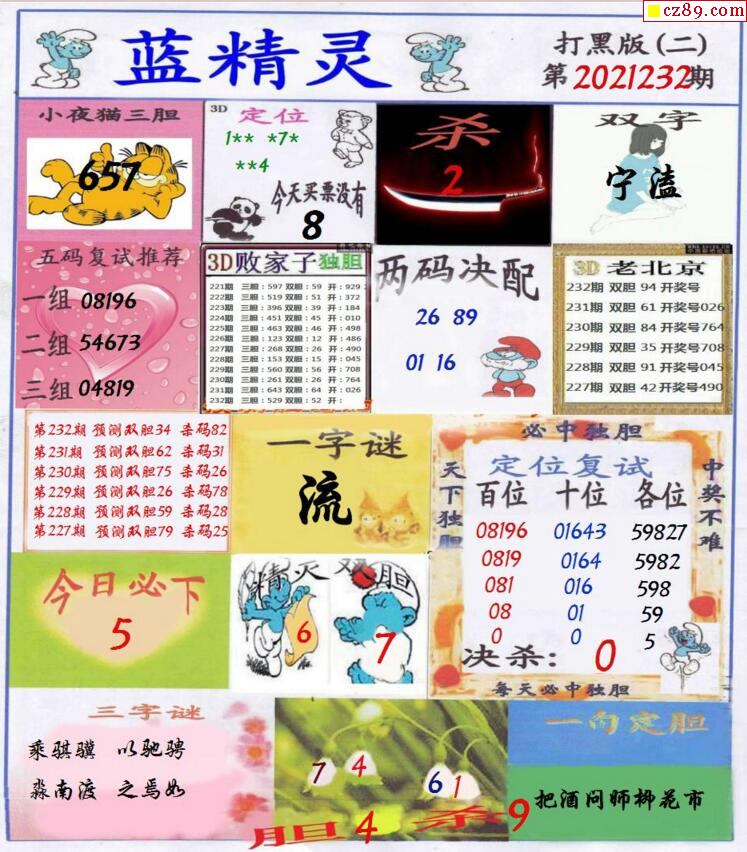 cz89.com
蓝精灵
打黑版(二)
第2021232期
小夜猫三胆
657
3D 定位
1** *7*
**4
今天买票没有
8
杀
2
双字
宁溘
五码复试推荐
一组 08196
二组 54673
三组 04819
3D败家子独胆
221期 三胆:597 双胆:59 开:929
222期 三胆:519 双胆:51 开:372
223期 三胆:396 双胆:39 开:184
224期 三胆:451 双胆:45 开:010
225期 三胆:463 双胆:46 开:498
226期 三胆:123 双胆:12 开:486
227期 三胆:268 双胆:26 开:490
228期 三胆:153 双胆:15 开:045
229期 三胆:560 双胆:56 开:708
230期 三胆:261 双胆:26 开:764
231期 三胆:643 双胆:64 开:026
232期 三胆:529 双胆:52 开:
两码决配
26 89
01 16
3D 老北京
232期 双胆 94 开奖号
231期 双胆 61 开奖号026
230期 双胆 84 开奖号764
229期 双胆 35 开奖号708
228期 双胆 91 开奖号045
227期 双胆 42 开奖号490
第232期 预测双胆34 杀码82
第231期 预测双胆62 杀码31
第230期 预测双胆75 杀码26
第229期 预测双胆26 杀码78
第228期 预测双胆59 杀码28
第227期 预测双胆79 杀码25
一字谜
流
必中独胆
天下独胆
中奖不难
定位复试
百位 十位 各位
08196 01643 59827
0819 0164 5982
081 016 598
08 01 59
0 0 5
决杀: 0
每天必中独胆
今日必下
5
精灵双胆
6
7
三字谜
乘骐骥 以驰骋
淼南渡 之焉如
7 4 6 1
胆 4 杀 9
一句定胆
把酒问师柳花市